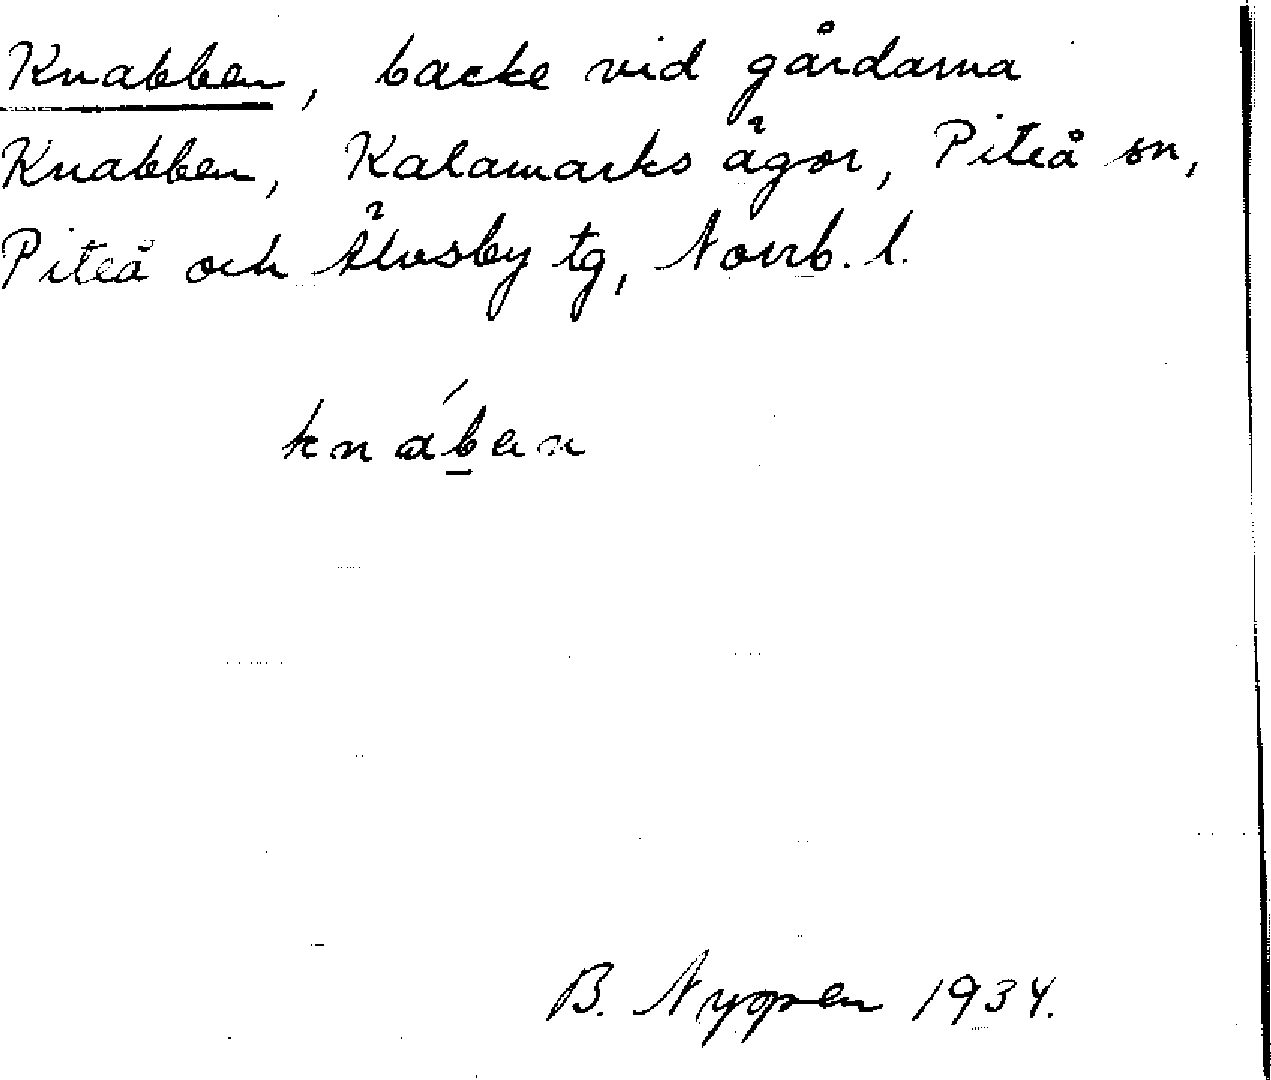 Knabben, backe vid gårdarna
Knabben, Kalamarks ägor, Piteå sn,
Piteå och Älvsby tg, Norrb. l.
knáb̲en
B. Nyppen 1934.